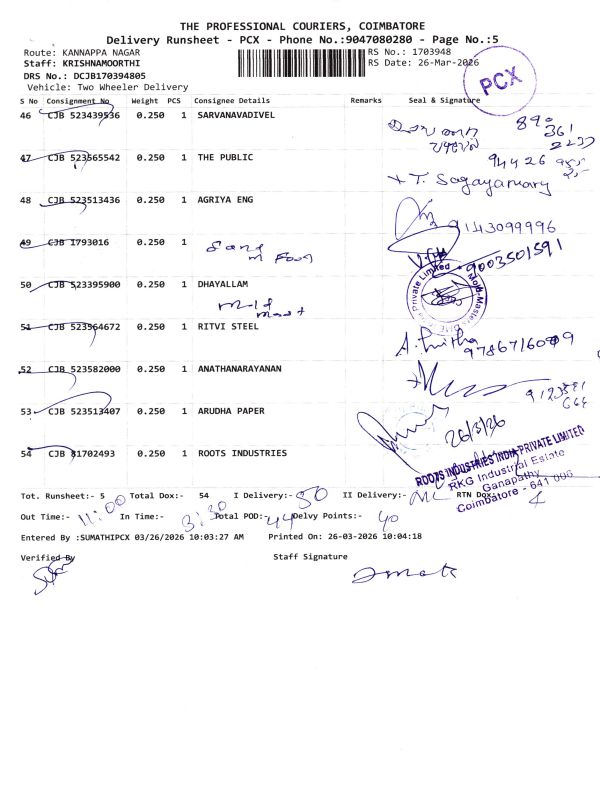 THE PROFESSIONAL COURIERS, COIMBATORE
Delivery Runsheet - PCX - Phone No.:9047080280 - Page No.:5
Route: KANNAPPA NAGAR RS No.: 1703948
Staff: KRISHNAMOORTHI RS Date: 26-Mar-2026
DRS No.: DCJB170394805
Vehicle: Two Wheeler Delivery
PCX
S No Consignment No Weight PCS Consignee Details Remarks Seal & Signature
46 CJB 523439536 0.250 1 SARVANAVADIVEL
47 CJB 523565542 0.250 1 THE PUBLIC 94426
T. Sagayamary
48 CJB 523513436 0.250 1 AGRIYA ENG 9143099996
49 CJB 1793016 0.250 1 9003501591
50 CJB 523395900 0.250 1 DHAYALLAM
Private Limited
51 CJB 523964672 0.250 1 RITVI STEEL
52 CJB 523582000 0.250 1 ANATHANARAYANAN
53 CJB 523513407 0.250 1 ARUDHA PAPER
26/3/26
54 CJB 81702493 0.250 1 ROOTS INDUSTRIES
ROOTS INDUSTRIES INDIA PRIVATE LIMITED
RKG Industrial Estate
Ganapathy
Coimbatore - 641 006
Tot. Runsheet:- 5 Total Dox:- 54 I Delivery:- 50 II Delivery:- NIL RTN Dox:- 4
Out Time:- 11:00 In Time:- 3:30 Total POD:- 44 Delvy Points:- 40
Entered By :SUMATHIPCX 03/26/2026 10:03:27 AM Printed On: 26-03-2026 10:04:18
Verified By Staff Signature